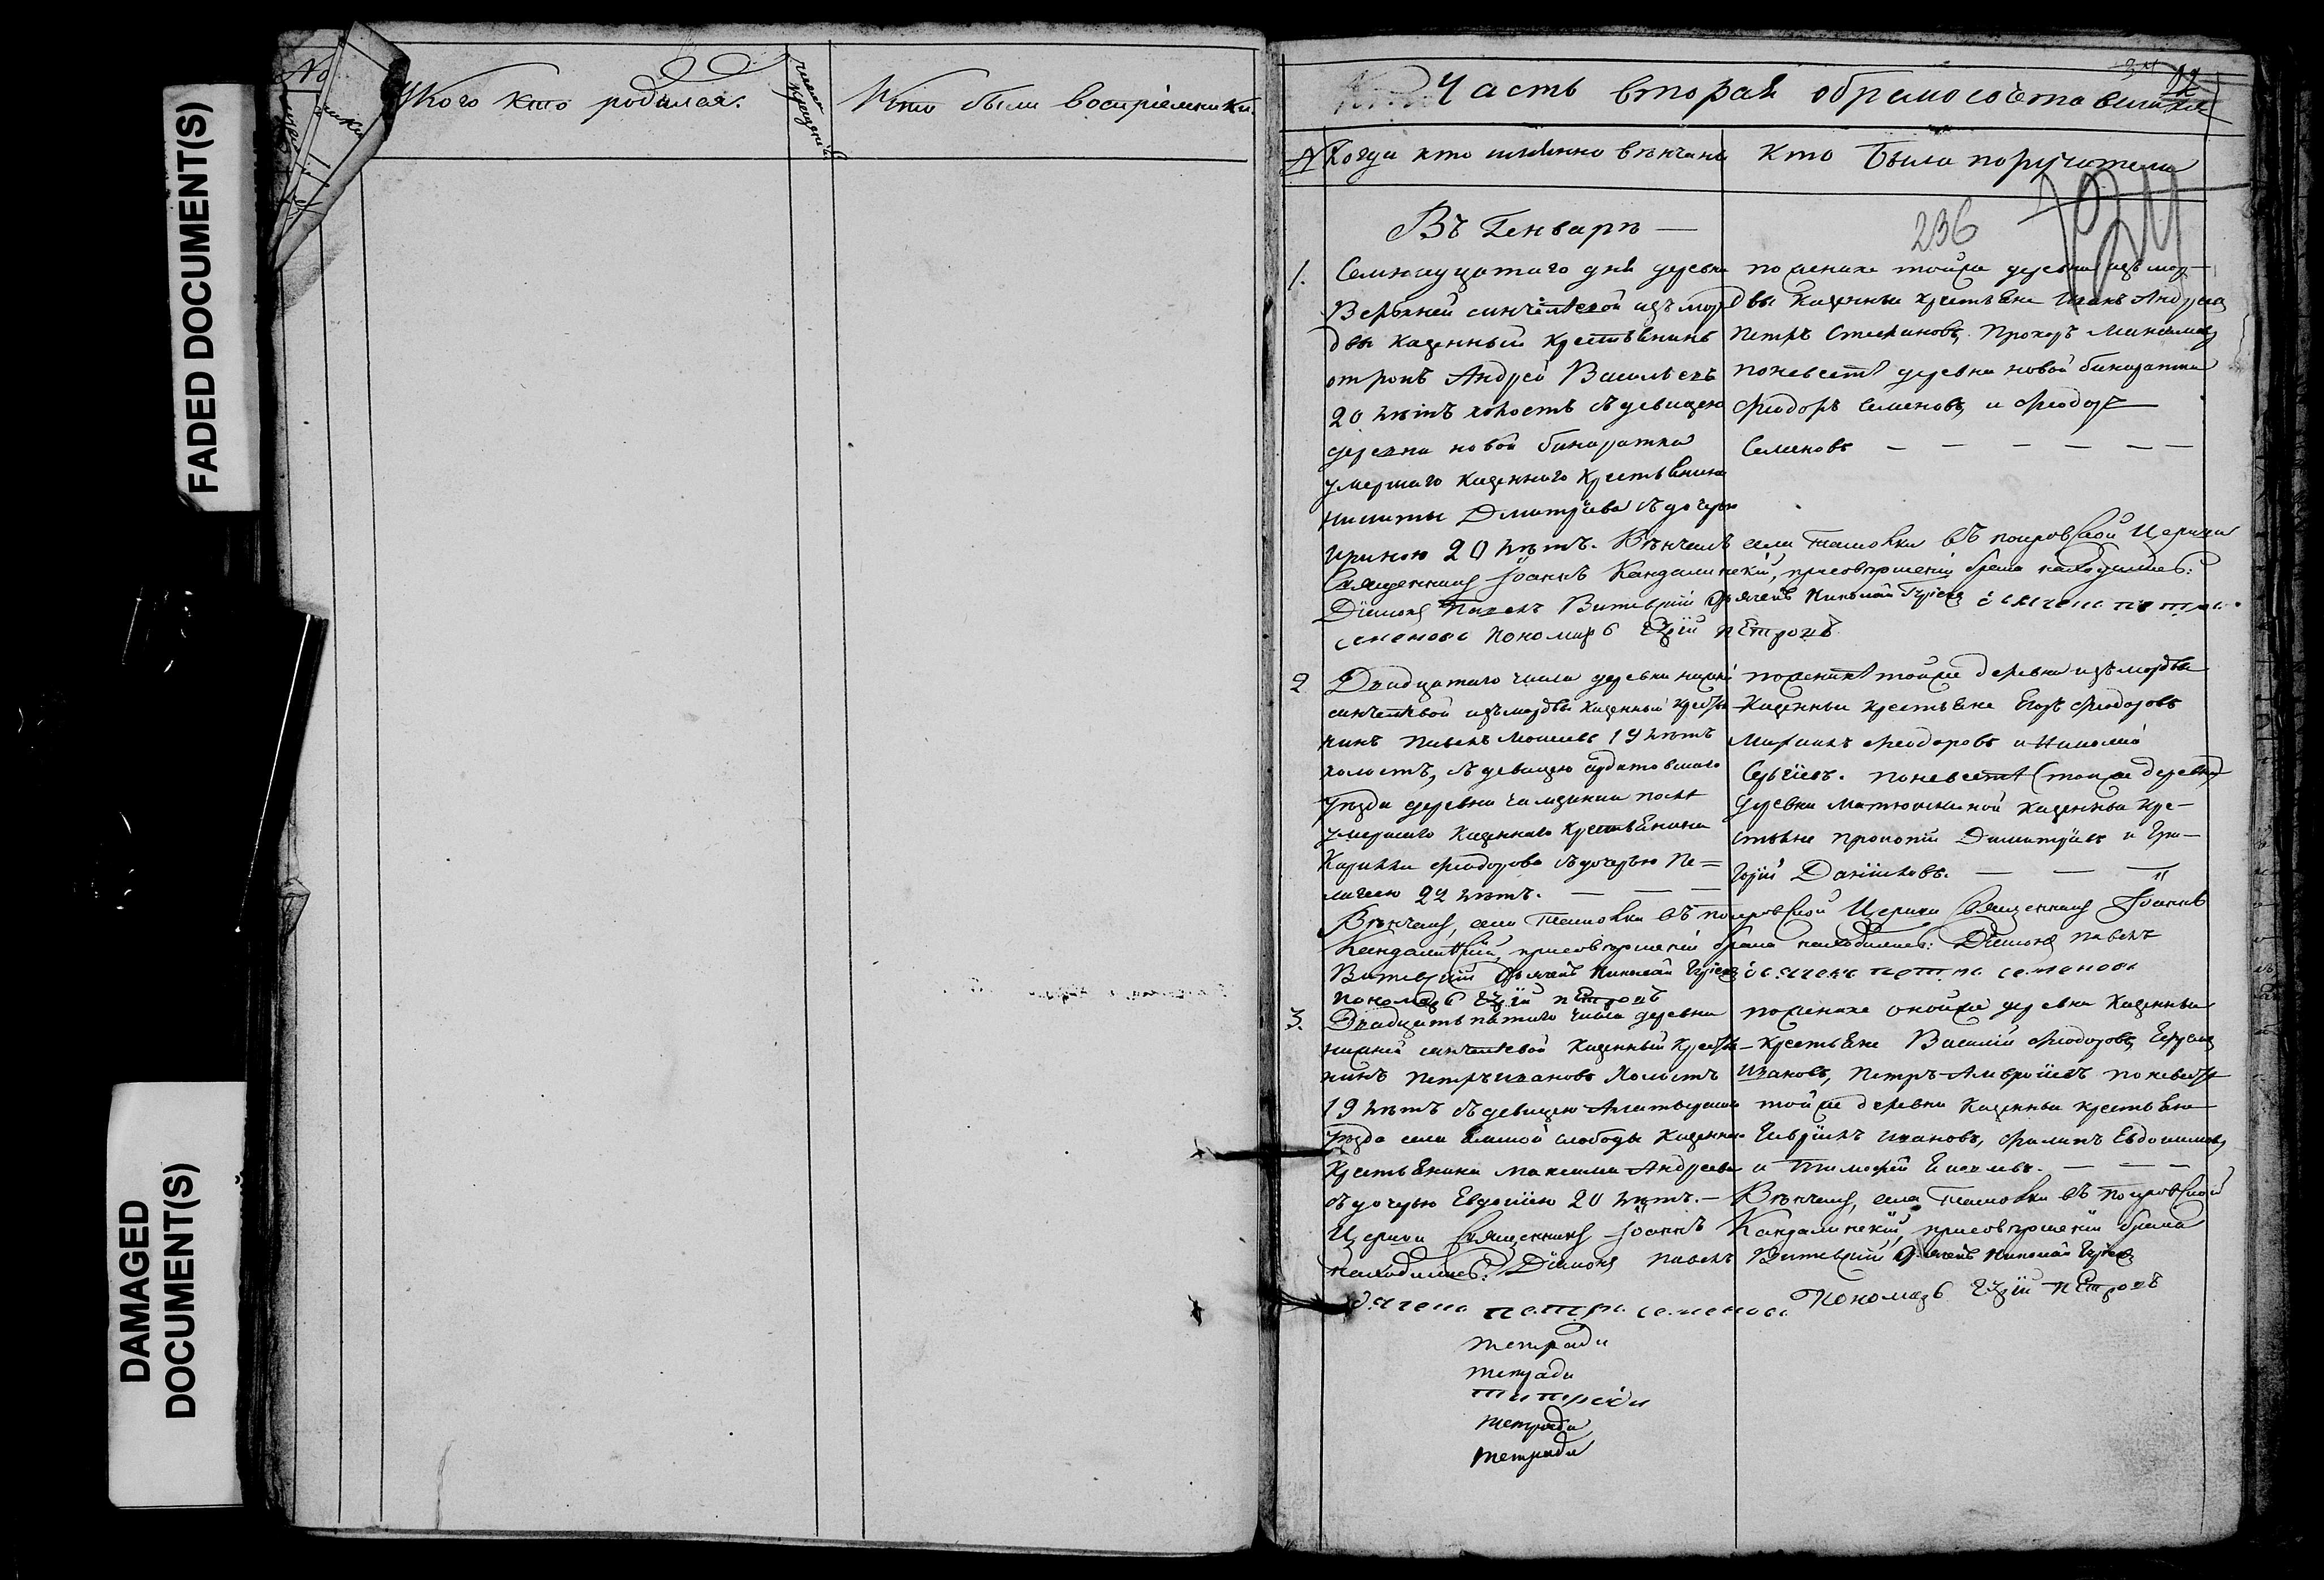 FADED DOCUMENT(S)
DAMAGED
DOCUMENT(S)
№
Укого кто родился.
число крещенія
Кто были воспріемники.
Часть вторая о бракосочетавшихся
№ Когда кто именно венчаны
Кто были поручатели
236
Въ Генваре —
1. Семнадцатаго дня деревни
Верхней санчелеевой изъ мор
двы казенный крестьянинъ
отрокъ Андрей Васильевъ
20 летъ холостъ съ девицею
деревни новой бинарадки
умершаго казеннаго крестьянина
никиты Дмитріева съ дочерью
Ириною 20 летъ. Венчалъ
по женихе тойже деревни изъ мор
двы казенные крестьяне Иванъ Андреевъ
Петръ Степановъ, Прохоръ Максимовъ
по невесте деревни новой бинарадки
Феодоръ Семеновъ, и Феодоръ
Семеновъ — — — — — —
села ташолки въ покровской Церкви
Священникъ Іоаннъ Кандалинскій, присовершеніи брака находились:
Діаконъ Павелъ Витевскій Дьячекъ Николай дьячекъ петръ
семеновъ пономарь петровъ
2 Двадцатаго числа деревни нижней
санчелеевой изъ мордвы казенный крестья
нинъ Павелъ Моисеевъ 19 летъ
холостъ, съ девицею
уезда деревни
умершаго казеннаго крестьянина
Феодорова съ дочерью Пе=
лагеею 22 летъ. — — —
по женихе тойже деревни изъ мордвы
казенные крестьяне Егоръ Феодоровъ
Феодоровъ и Николай
Сергеевъ. по невесте (тойже деревни)
деревни матюшкиной казенные кре-
стьяне Прокопій Димитріевъ и Гри-
горій Даниловъ. — — —
Венчалъ, села ташолки въ покровской Церкви Священникъ Іоаннъ
Кандалинскій, присовершеніи брака находились: Діаконъ павелъ
Витевскій Дьячекъ Николай дьячекъ петръ семеновъ
пономарь петровъ
3. Двадцать пятаго числа деревни
нижней санчелеевой казенный крестья
нинъ Петръ ивановъ холостъ
19 летъ съ девицею
уезда села слободы казеннаго
крестьянина максима Андреева
съ дочерью Евдокіею 20 летъ. —
по женихе онойже деревни казенные
крестьяне Василій Феодоровъ,
Ивановъ, Петръ Амвросіевъ по невесте
тойже деревни казенные крестьяне
Гавріилъ ивановъ, Филипъ Евдокимовъ,
и Тимофей — — —
Венчалъ, села ташолки въ покровской
Церкви Священникъ Іоаннъ Кандалинскій, присовершеніи брака
находились: Діаконъ павелъ Витевскій Дьячекъ Николай
дьячекъ петръ семеновъ Пономарь петровъ
тетради
тетради
тетради
тетради